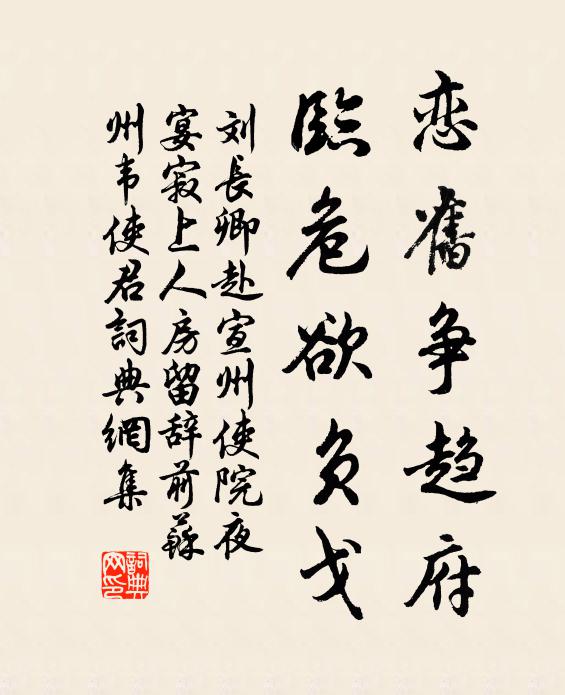 恋舊争趋府
臨危欲负戈
刘長卿赴宣州使院夜
宴寂上人房留辞前蘇
州韦使君詞典網集
詞典网印